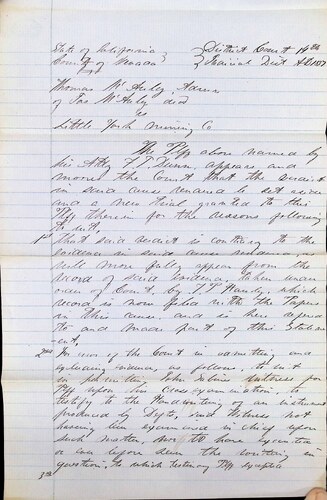 State of California } District Court 14th
County of Nevada } Judicial Dist
Thomas McAuly Admr
of Jas McAuly decd
vs
Little York Mining Co
The Plff above named by
his Atty F. T. Dunn, appears and
moves the Court that the verdict
in said cause rendered be set aside
and a new trial granted to this
Plff therein for the reasons following
to wit,
1st That said verdict is contrary to the
evidence in said cause
will more fully appear from the
record of said evidence taken under
order of Court, by which
record is now filed with the Papers
in this cause and is here referred
to and made part of this Statem-
-ent,
2nd Errors of the Court in admitting and
excluding evidence, as follows, to wit
in permitting John witness for
Plff upon his Cross examination, to
testify to the Handwriting of an instrument
produced by Defts, said Witness not
having been examined in chief upon
such matter, nor to have
or ever before seen the writing in
question, to which testimony Plff excepted
3rd